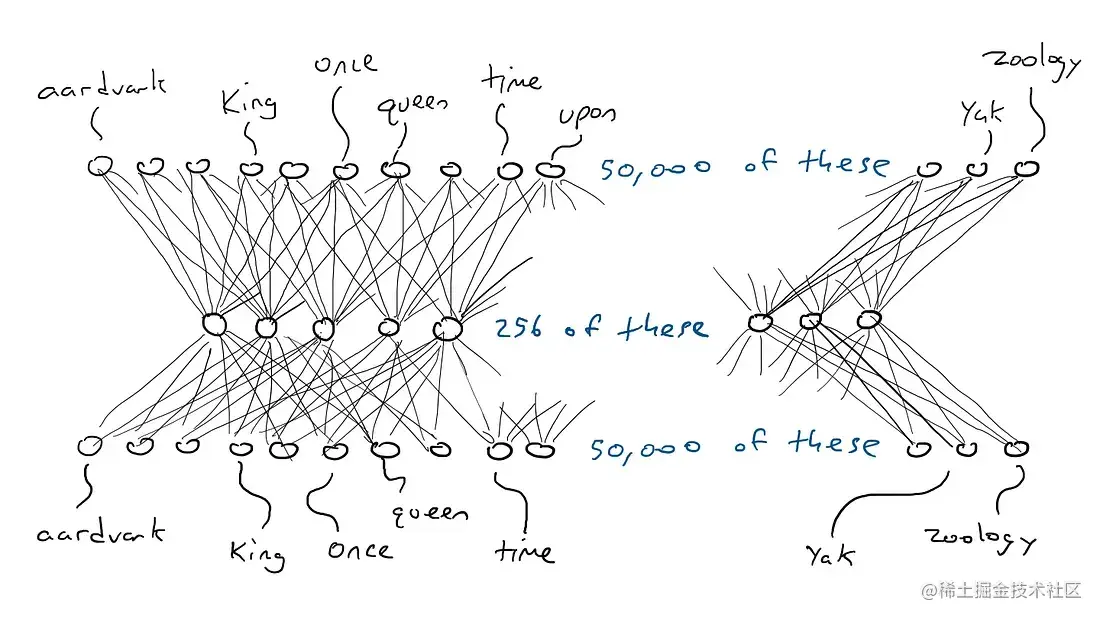 aardvark King once queen time upon Yak zoology
50,000 of these
256 of these
50,000 of these
aardvark King once queen time Yak zoology
@稀土掘金技术社区